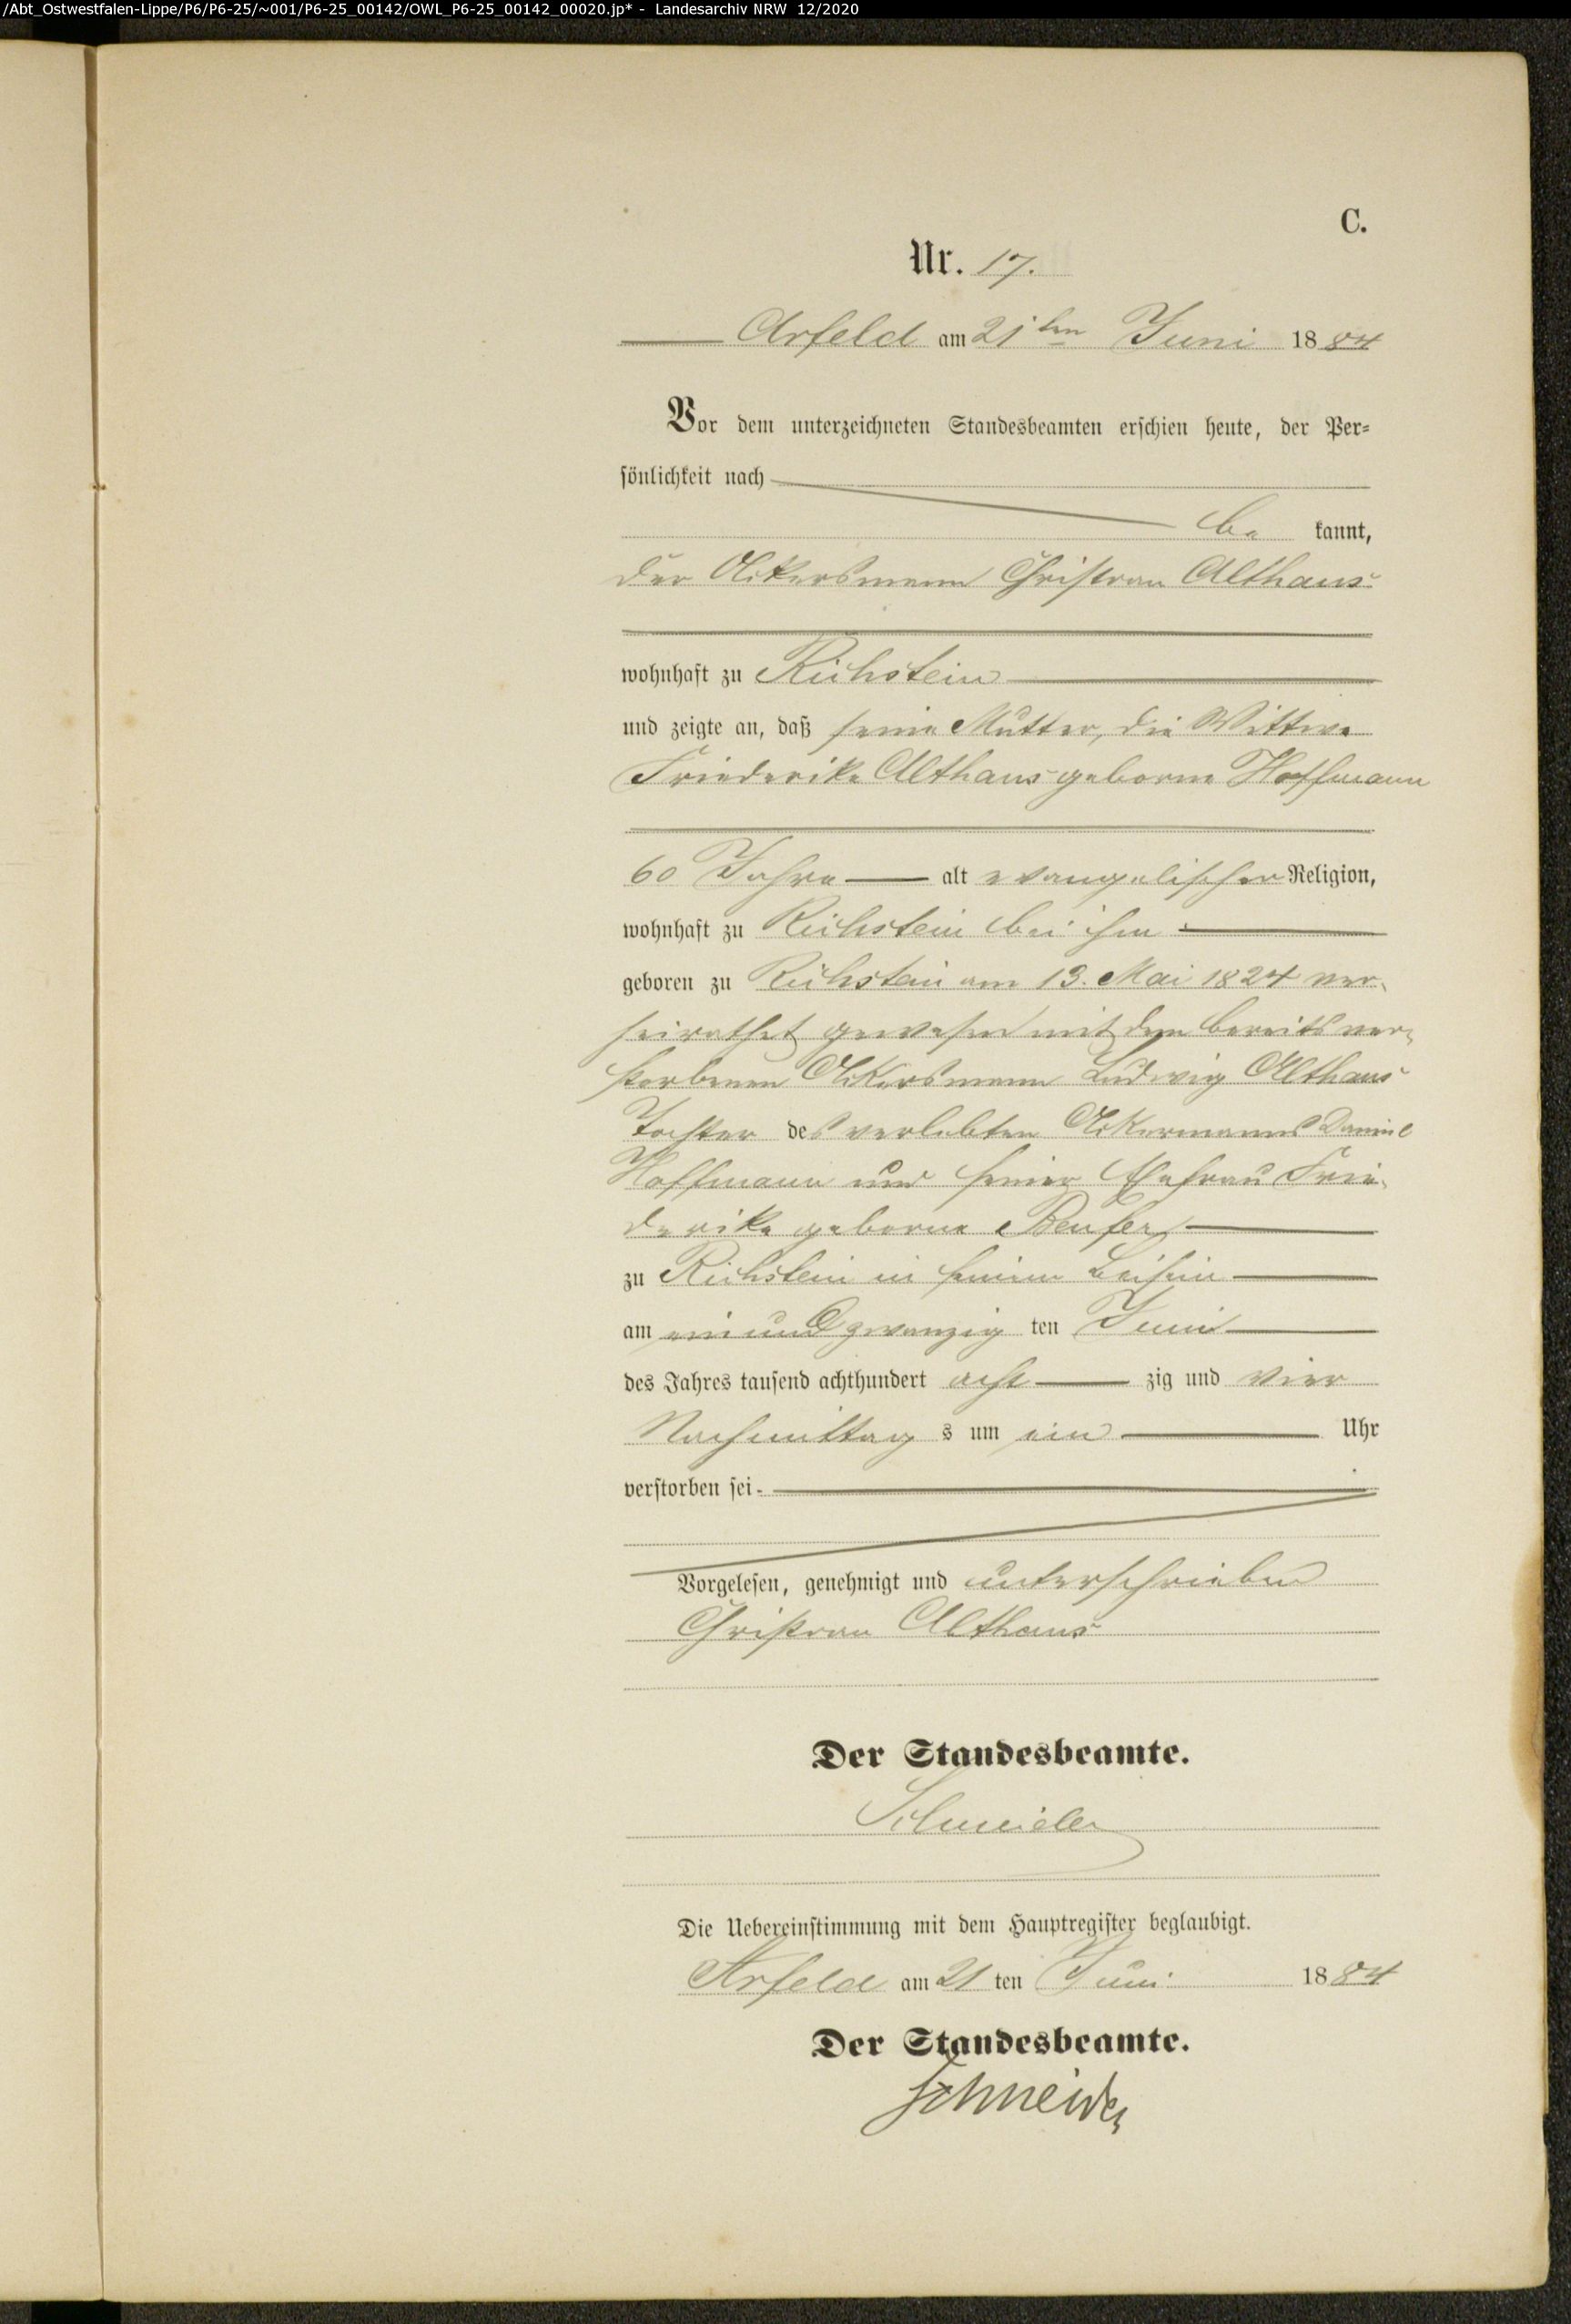 /Abt_Ostwestfalen-Lippe/P6/P6-25/~001/P6-25_00142/OWL_P6-25_00142_00020.jp* - Landesarchiv NRW 12/2020
C.
Nr. 17.
Arfeld am 21ten Juni 1884
Vor dem unterzeichneten Standesbeamten erschien heute, der Per=
sönlichkeit nach
be kannt,
der Ackersmann Christian Althaus
wohnhaft zu Richstein
und zeigte an, daß seine Mutter, die Wittwe
Friederike Althaus geborne Hoffmann
60 Jahre alt evangelischer Religion,
wohnhaft zu Richstein bei ihm
geboren zu Richstein am 13. Mai 1824 ver-
heirathet gewesen mit dem bereits ver-
storbenen Ackersmann Ludwig Althaus
Tochter des verlebten Ackermanns Daniel
Hoffmann und seiner Ehefrau Frie-
derike geborne Benfer
zu Richstein in seinem Beisein
am ein und zwanzig ten Juni
des Jahres tausend achthundert acht zig und vier
Nachmittag s um ein Uhr
verstorben sei.
Vorgelesen, genehmigt und unterschrieben
Christian Althaus
Der Standesbeamte.
Schneider
Die Uebereinstimmung mit dem Hauptregister beglaubigt.
Arfeld am 21 ten Juni 1884
Der Standesbeamte.
Schneider